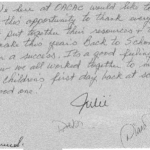 We here at OACAC would like to
this opportunity to thank every
put together their resources &
make this year's Back to School
a success. It's a good feeling
we all worked together to
children's first day back at sc
good one!
Julie